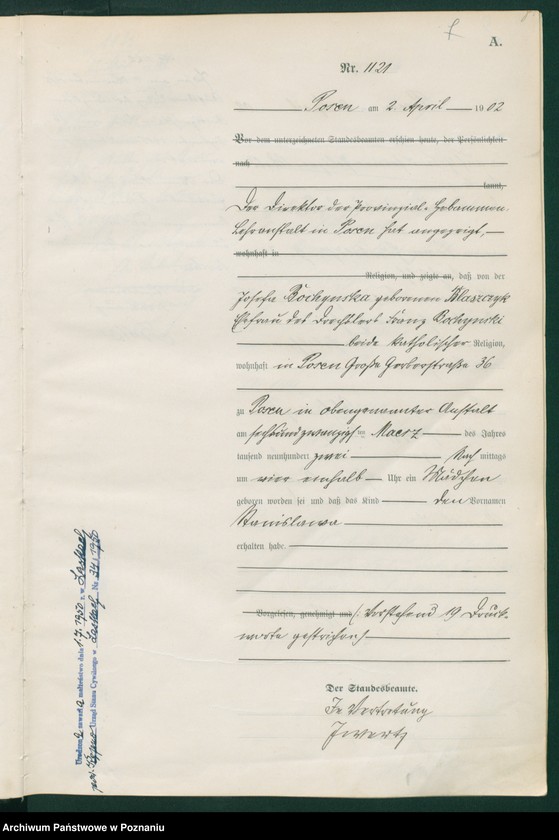 A.
Nr. 1121
Posen am 2. April 1902
Vor dem unterzeichneten Standesbeamten erschien heute, der Persönlichkeit
nach
kannt,
Der Direktor der Provinzial-Hebammen-
Lehranstalt in Posen hat angezeigt,
wohnhaft in
Religion, und zeigte an, daß von der
Josefa Bochynska geborenen Blaszczyk
Ehefrau des Drechslers Franz Bochynski
beide katholischer Religion,
wohnhaft in Posen Große Gerberstraße 36
zu Posen in obengenannter Anstalt
am sechsundzwanzigsten Maerz des Jahres
tausend neunhundert zwei Nach mittags
um vier einhalb Uhr ein Mädchen
geboren worden sei und daß das Kind den Vornamen
Stanislawa
erhalten habe.
Vorgelesen, genehmigt und (: Vorstehend 19 Druck-
worte gestrichen
Der Standesbeamte.
In Vertretung
Urodzona zawarła małżeństwo dnia 1.7.1930 r. w
Urząd Stanu Cywilnego w Nr. 34/1930
Archiwum Państwowe w Poznaniu